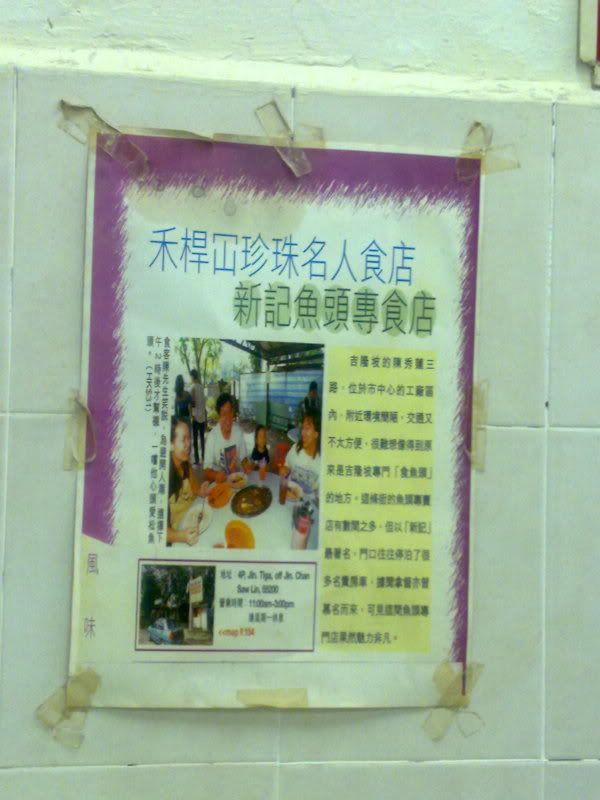 禾桿冚珍珠名人食店
新記魚頭專食店
食客陳先生笑說，為避開人潮，選擇下
午2時後才幫襯，一嚐他心頭愛松魚
頭。(HK$31)
吉隆坡的陳秀蓮三
路，位於市中心的工廠區
內，附近環境簡陋，交通又
不太方便，很難想像得到原
來是吉隆坡專門「食魚頭」
的地方。這條街的魚頭專賣
店有數間之多，但以「新記」
最著名，門口往往停泊了很
多名貴房車，據聞拿督亦曾
慕名而來，可見這間魚頭專
門店果然魅力非凡。
地址：4P, Jln. Tiga, off Jln. Chan
Saw Lin, 55200
營業時間：11:00am-3:00pm
逢星期一休息
<<map P.104
風味